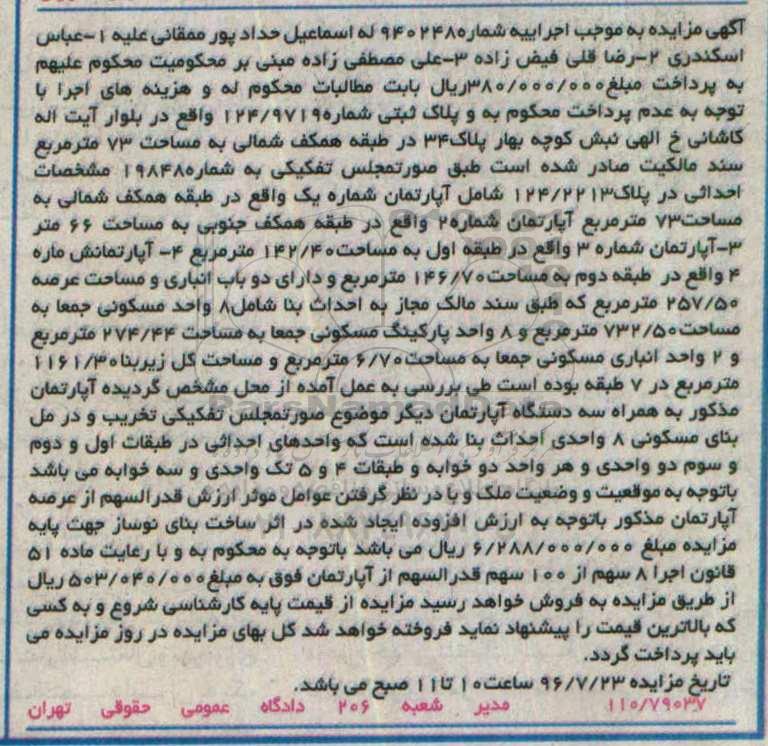 آگهی مزایده به موجب اجراییه شماره ۹۴۰۲۴۸ له اسماعیل حداد پور ممقانی علیه ۱-عباس
اسکندری ۲-رضا قلی فیض زاده ۳-علی مصطفی زاده مبنی بر محکومیت محکوم علیهم
به پرداخت مبلغ۳۸۰/۰۰۰/۰۰۰ریال بابت مطالبات محکوم له و هزینه های اجرا با
توجه به عدم پرداخت محکوم به و پلاک ثبتی شماره۱۲۴/۹۷۱۹ واقع در بلوار آیت اله
کاشانی خ الهی نبش کوچه بهار پلاک۳۴ در طبقه همکف شمالی به مساحت ۷۳ مترمربع
سند مالکیت صادر شده است طبق صورتمجلس تفکیکی به شماره۱۹۸۴۸ مشخصات
احداثی در پلاک۱۲۴/۲۲۱۳ شامل آپارتمان شماره یک واقع در طبقه همکف شمالی به
مساحت۷۳ مترمربع آپارتمان شماره۲ واقع در طبقه همکف جنوبی به مساحت ۶۶ متر
۳-آپارتمان شماره ۳ واقع در طبقه اول به مساحت۱۴۲/۴۰ مترمربع ۴- آپارتمانش ماره
۴ واقع در طبقه دوم به مساحت۱۴۶/۷۰ مترمربع و دارای دو باب انباری و مساحت عرصه
۲۵۷/۵۰ مترمربع که طبق سند مالک مجاز به احداث بنا شامل۸ واحد مسکونی جمعا به
مساحت۷۳۲/۵۰ مترمربع و ۸ واحد پارکینگ مسکونی جمعا به مساحت ۲۷۴/۴۴ مترمربع
و ۲ واحد انباری مسکونی جمعا به مساحت۶/۷۰ مترمربع و مساحت کل زیربنا۱۱۶۱/۳۰
مترمربع در ۷ طبقه بوده است طی بررسی به عمل آمده از محل مشخص گردیده آپارتمان
مذکور به همراه سه دستگاه آپارتمان دیگر موضوع صورتمجلس تفکیکی تخریب و در مل
بنای مسکونی ۸ واحدی احداث بنا شده است که واحدهای احداثی در طبقات اول و دوم
و سوم دو واحدی و هر واحد دو خوابه و طبقات ۴ و ۵ تک واحدی و سه خوابه می باشد
باتوجه به موقعیت و وضعیت ملک و با در نظر گرفتن عوامل موثر ارزش قدرالسهم از عرصه
آپارتمان مذکور باتوجه به ارزش افزوده ایجاد شده در اثر ساخت بنای نوساز جهت پایه
مزایده مبلغ ۶/۲۸۸/۰۰۰/۰۰۰ ریال می باشد باتوجه به محکوم به و با رعایت ماده ۵۱
قانون اجرا ۸ سهم از ۱۰۰ سهم قدرالسهم از آپارتمان فوق به مبلغ۵۰۳/۰۴۰/۰۰۰ ریال
از طریق مزایده به فروش خواهد رسید مزایده از قیمت پایه کارشناسی شروع و به کسی
که بالاترین قیمت را پیشنهاد نماید فروخته خواهد شد کل بهای مزایده در روز مزایده می
باید پرداخت گردد.
تاریخ مزایده ۹۶/۷/۲۳ ساعت۱۰ تا۱۱ صبح می باشد.
۱۱۰/۷۹۰۳۷ مدیر شعبه ۲۰۶ دادگاه عمومی حقوقی تهران